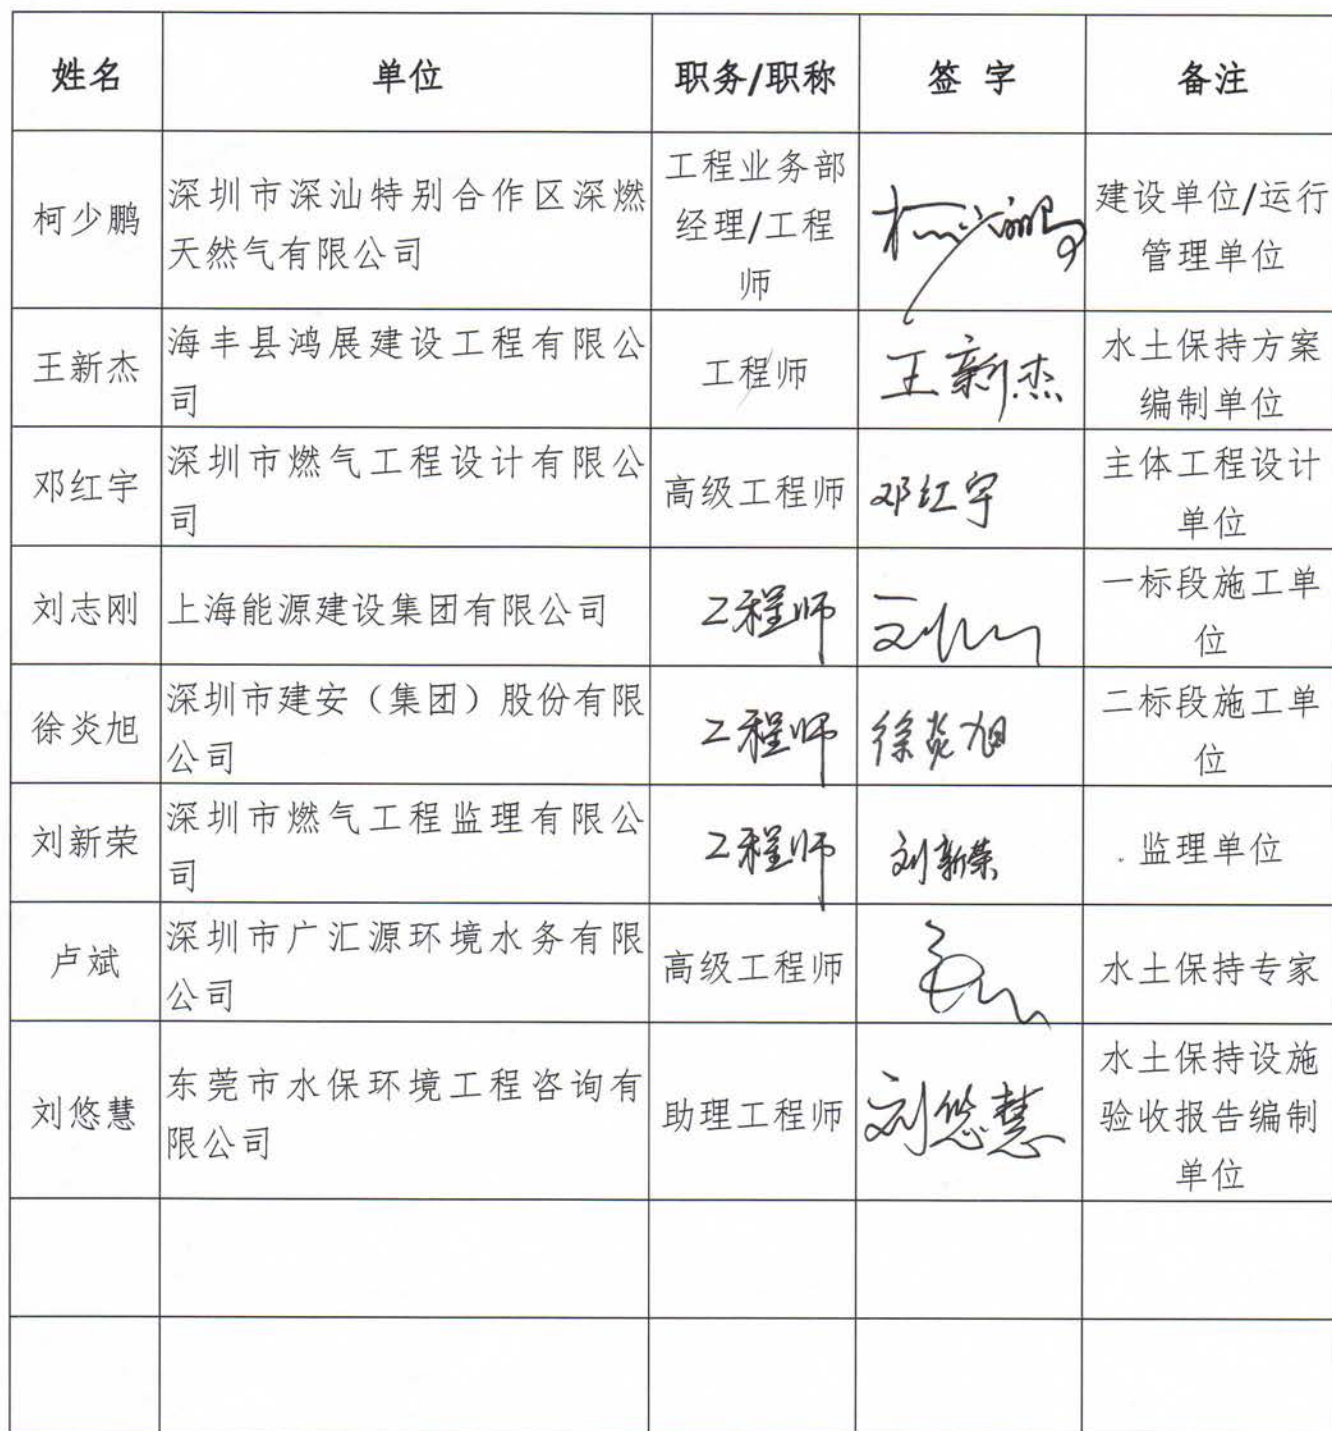 姓名 单位 职务/职称 签 字 备注
柯少鹏
深圳市深汕特别合作区深燃
天然气有限公司
工程业务部
经理/工程
师
柯少鹏
建设单位/运行
管理单位
王新杰
海丰县鸿展建设工程有限公
司
工程师
王新杰
水土保持方案
编制单位
邓红宇
深圳市燃气工程设计有限公
司
高级工程师
邓红宇
主体工程设计
单位
刘志刚
上海能源建设集团有限公司
工程师
一标段施工单
位
徐炎旭
深圳市建安（集团）股份有限
公司
工程师
徐炎旭
二标段施工单
位
刘新荣
深圳市燃气工程监理有限公
司
工程师
刘新荣
监理单位
卢斌
深圳市广汇源环境水务有限
公司
高级工程师
水土保持专家
刘悠慧
东莞市水保环境工程咨询有
限公司
助理工程师
刘悠慧
水土保持设施
验收报告编制
单位